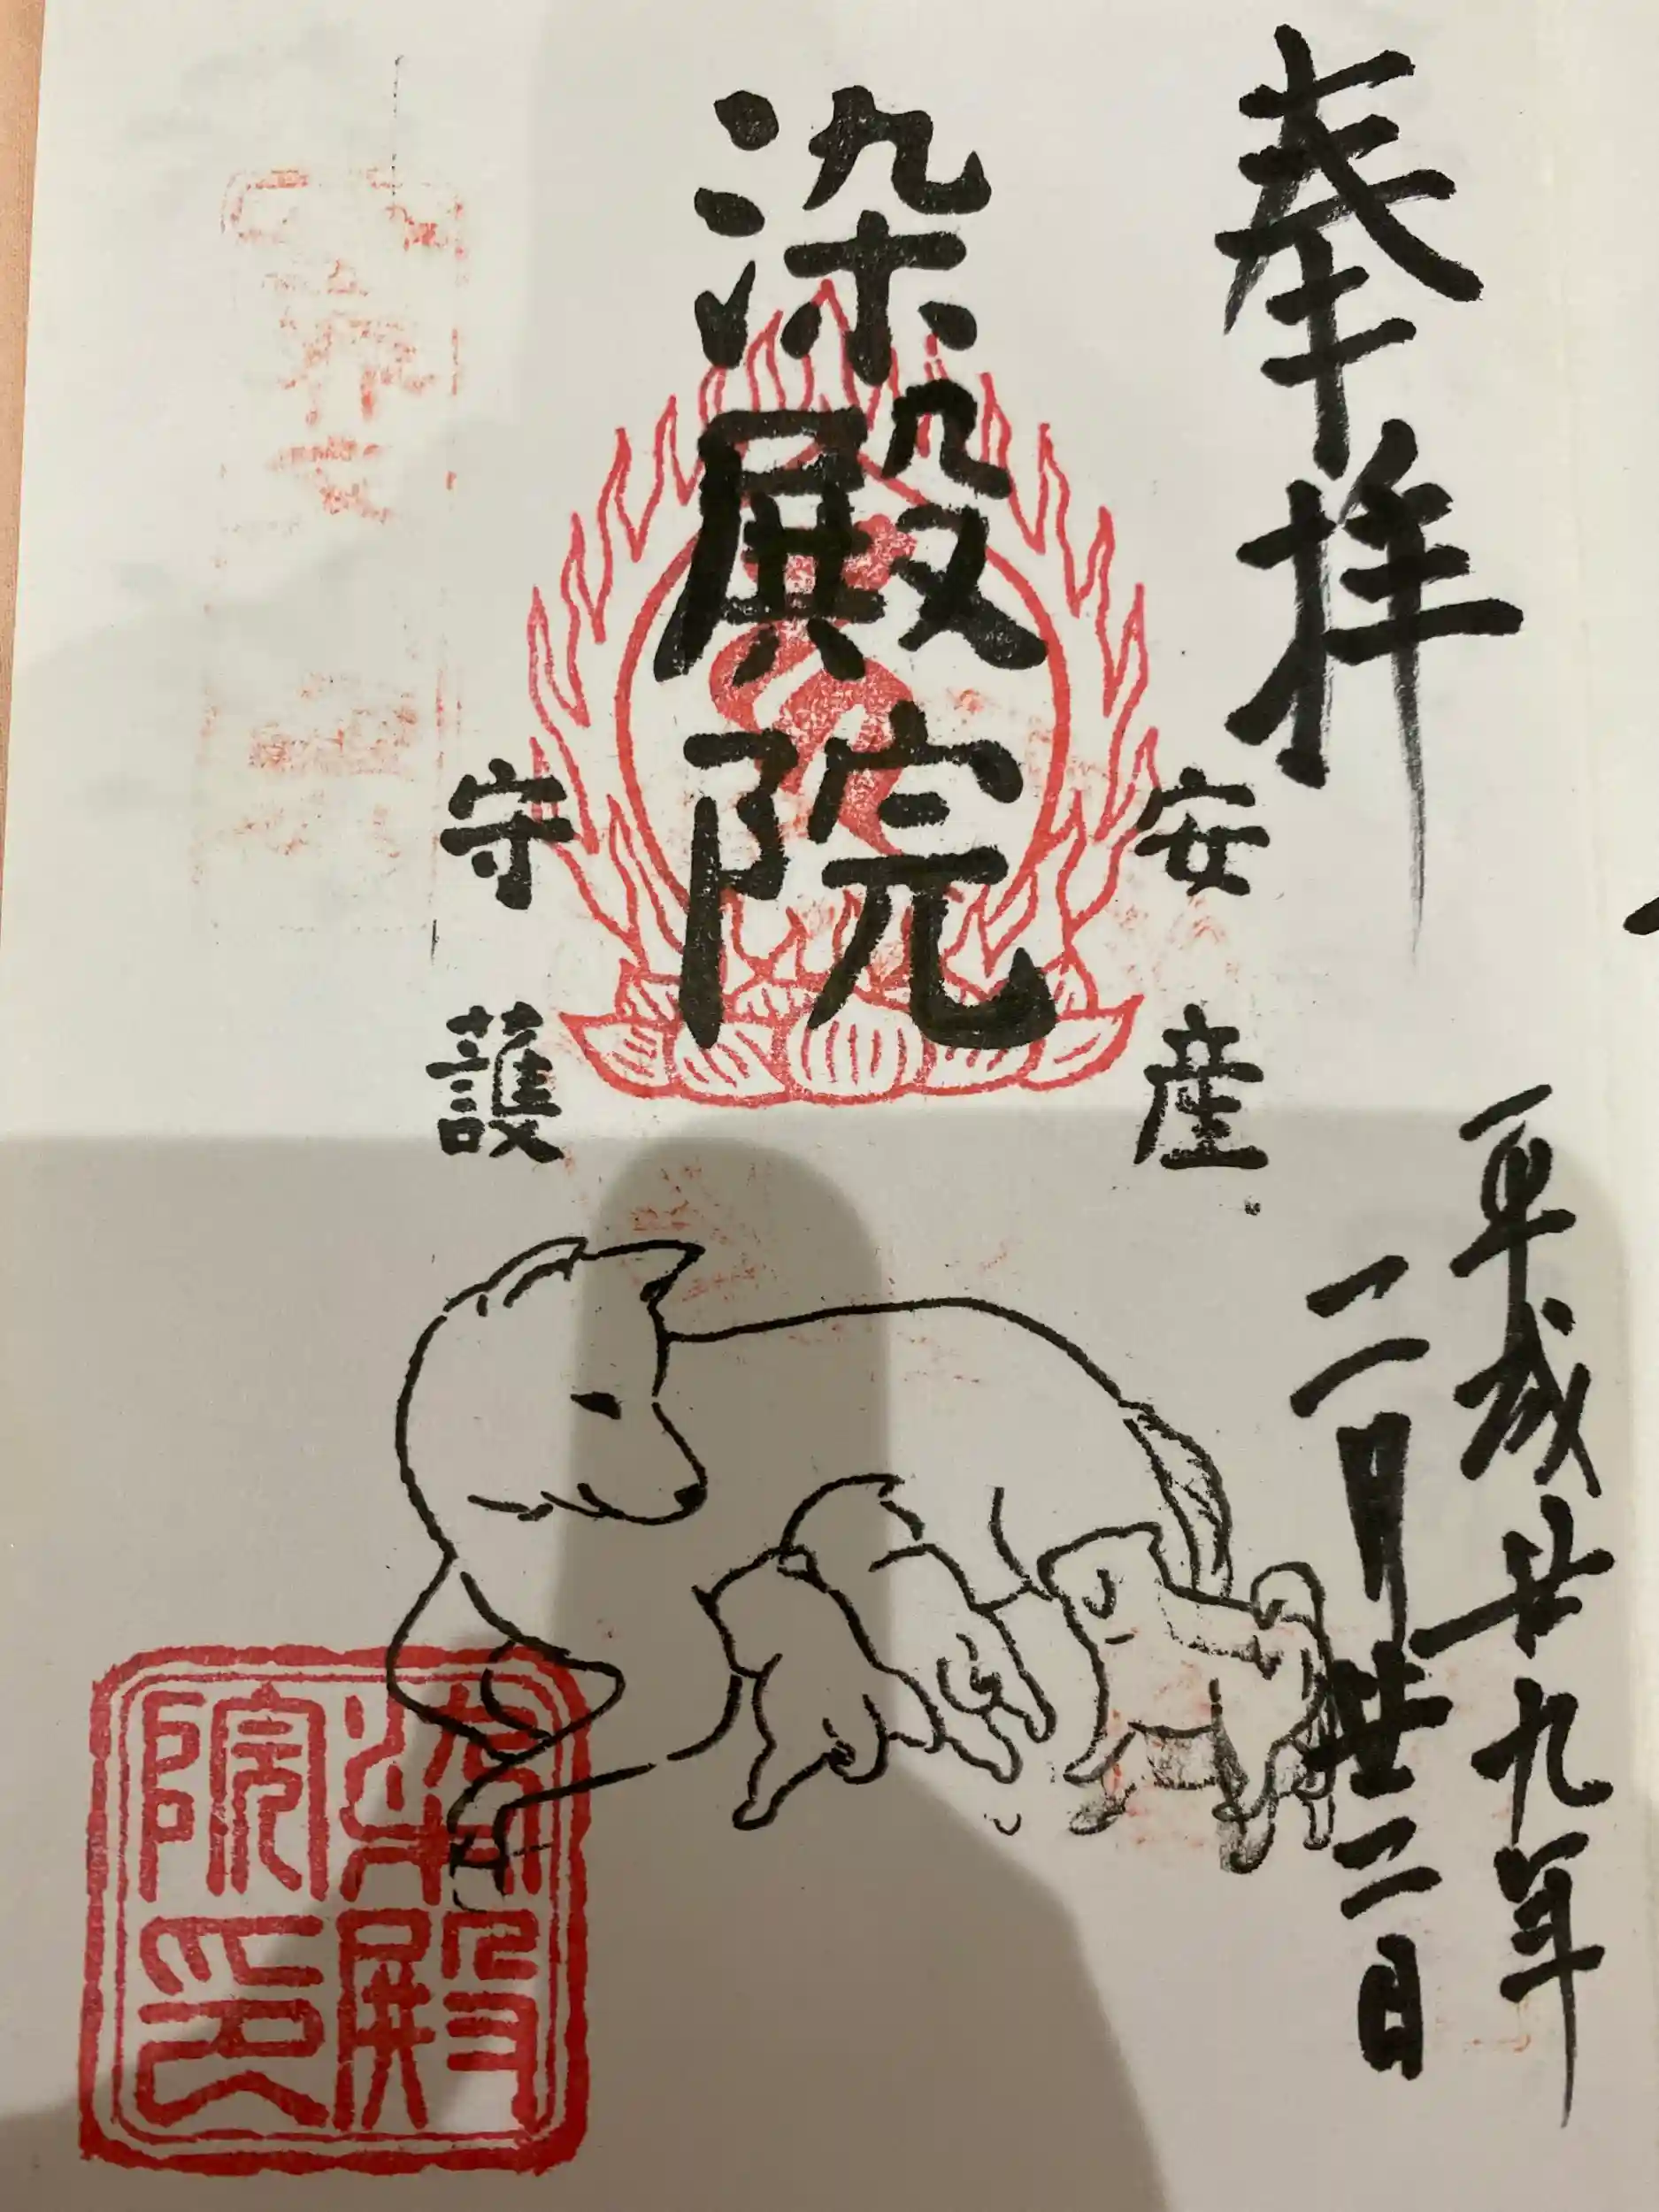 奉拝
平成廿九年
二月廿二日
安産
染殿院
守護
染殿院印